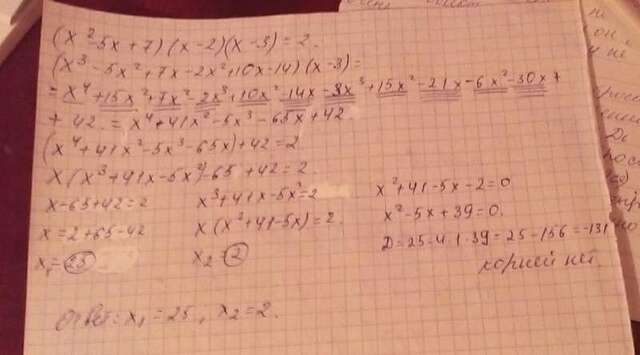 (x²-5x+7)(x-2)(x-3)=2.
(x³-5x²+7x-2x²+10x-14)(x-3)=
=x⁴+15x²+7x²-2x³+10x²-14x-3x³+15x²-21x-6x²-30x+
+42.=x⁴+41x²-5x³-65x+42
(x⁴+41x²-5x³-65x)+42=2
x(x³+41x-5x²)-65+42=2.
x-65+42=2
x=2+65-42
x₁=25
x³+41x-5x²=2
x(x²+41-5x)=2.
x₂=2
x²+41-5x-2=0
x²-5x+39=0.
D=25-4·1·39=25-156=-131
корней нет.
Ответ: x₁=25, x₂=2.